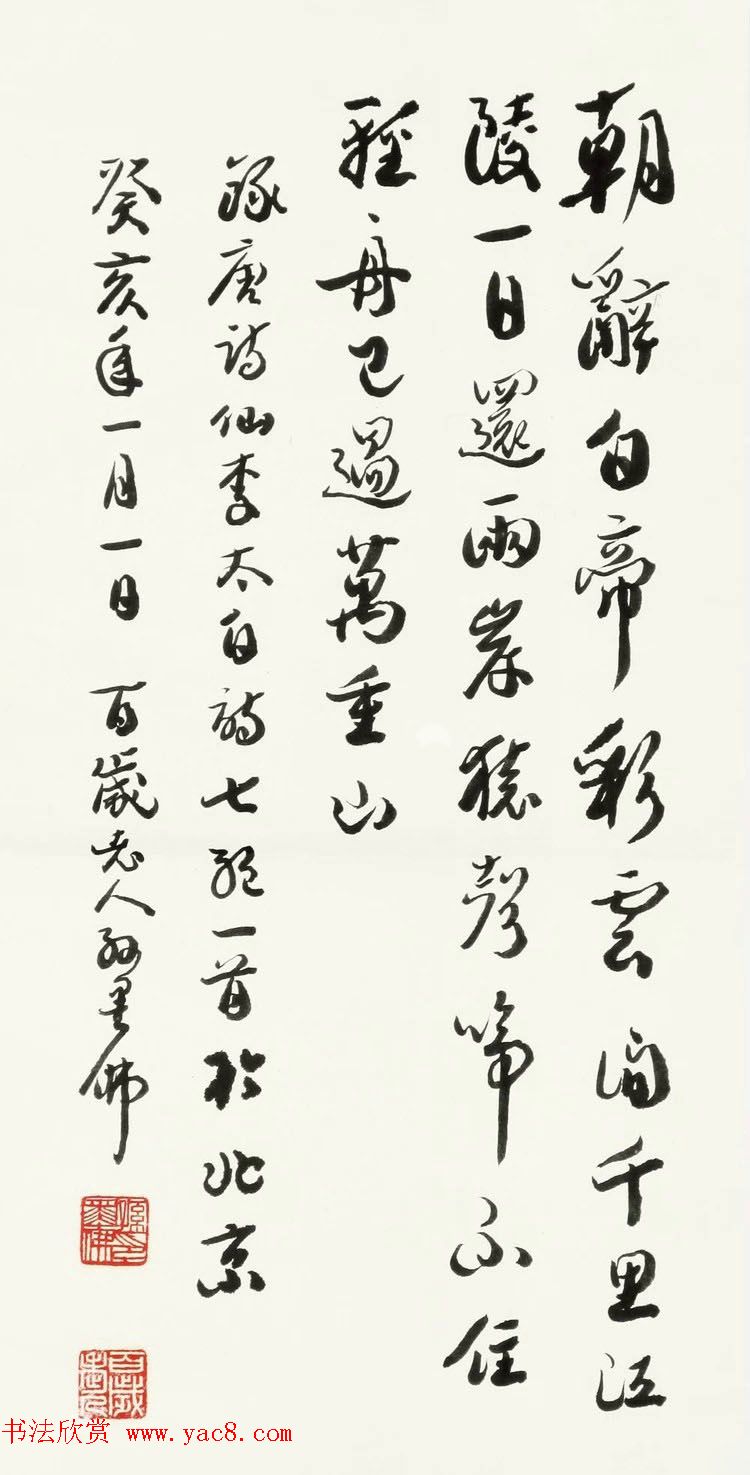 朝辭白帝彩雲间千里江
陵一日還兩岸猿聲啼不住
輕舟已過萬重山
録唐诗仙李太白詩七絕一首於北京
癸亥年一月一日 百歲老人孙墨佛
孫墨佛印
百歲老人
书法欣赏 www.yac8.com